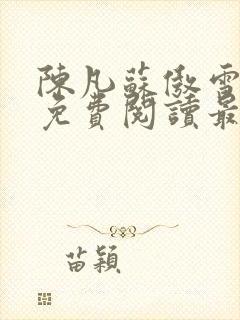 陳凡蘇傲雪
免費閱讀最
苗穎